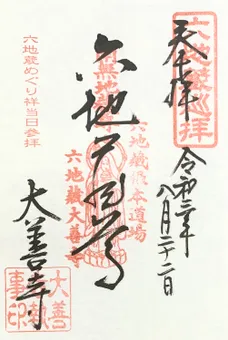 六地蔵巡拝
奉拝
令和三年
八月二十二日
六地蔵尊
六地蔵根本道場
六地蔵大善寺
大善寺
六地蔵めぐり祥当日参拝
大善
執
事印